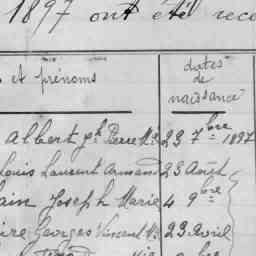 1897 ont été reco
et prénoms
dates
de
naissance
Albert Jh Pierre Me 23 7bre 1897
Louis Laurent Armand 23 Août
ain Joseph Marie 4 9bre
ire Georges Vincent Me 23 Avril